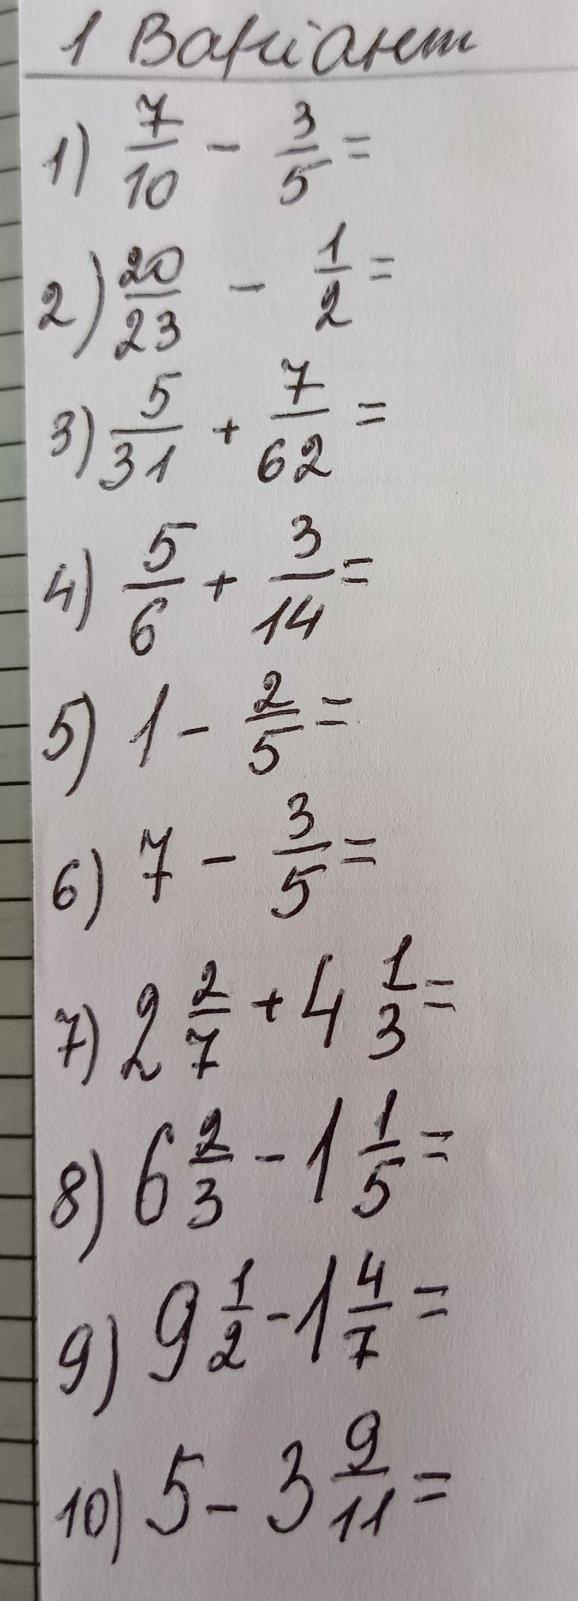 1 Варіант
1) 7/10 - 3/5 =
2) 20/23 - 1/2 =
3) 5/31 + 7/62 =
4) 5/6 + 3/14 =
5) 1 - 2/5 =
6) 7 - 3/5 =
7) 2 2/7 + 4 1/3 =
8) 6 2/3 - 1 1/5 =
9) 9 1/2 - 1 4/7 =
10) 5 - 3 9/11 =